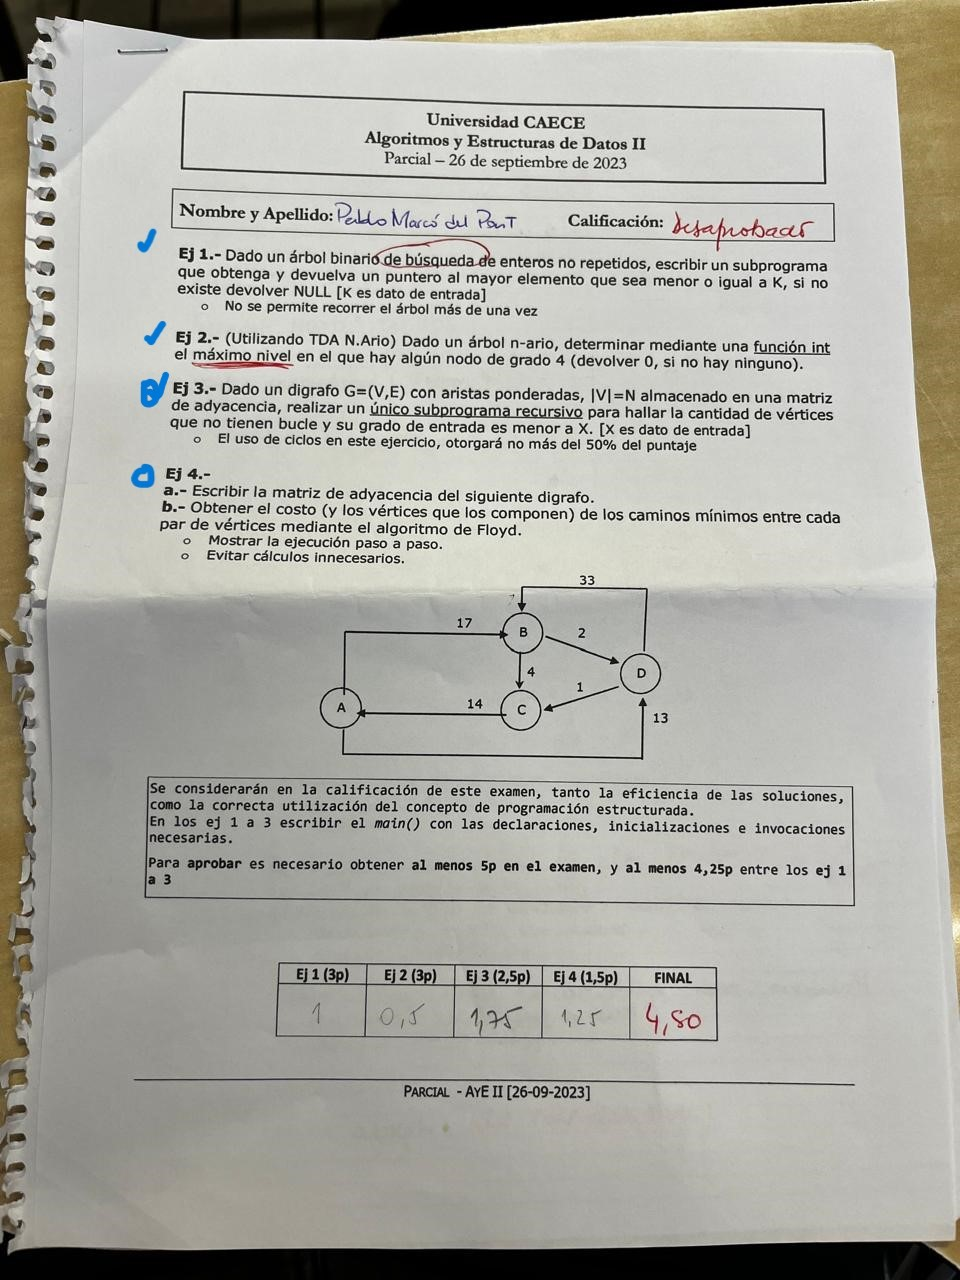 Universidad CAECE
Algoritmos y Estructuras de Datos II
Parcial – 26 de septiembre de 2023
Nombre y Apellido: Pablo Marcó del Pont Calificación: Desaprobado
Ej 1.- Dado un árbol binario de búsqueda de enteros no repetidos, escribir un subprograma
que obtenga y devuelva un puntero al mayor elemento que sea menor o igual a K, si no
existe devolver NULL [K es dato de entrada]
o No se permite recorrer el árbol más de una vez
Ej 2.- (Utilizando TDA N.Ario) Dado un árbol n-ario, determinar mediante una función int
el máximo nivel en el que hay algún nodo de grado 4 (devolver 0, si no hay ninguno).
Ej 3.- Dado un digrafo G=(V,E) con aristas ponderadas, |V|=N almacenado en una matriz
de adyacencia, realizar un único subprograma recursivo para hallar la cantidad de vértices
que no tienen bucle y su grado de entrada es menor a X. [X es dato de entrada]
o El uso de ciclos en este ejercicio, otorgará no más del 50% del puntaje
Ej 4.-
a.- Escribir la matriz de adyacencia del siguiente digrafo.
b.- Obtener el costo (y los vértices que los componen) de los caminos mínimos entre cada
par de vértices mediante el algoritmo de Floyd.
o Mostrar la ejecución paso a paso.
o Evitar cálculos innecesarios.
33
17
B
2
4
D
1
A
14
C
13
Se considerarán en la calificación de este examen, tanto la eficiencia de las soluciones,
como la correcta utilización del concepto de programación estructurada.
En los ej 1 a 3 escribir el main() con las declaraciones, inicializaciones e invocaciones
necesarias.
Para aprobar es necesario obtener al menos 5p en el examen, y al menos 4,25p entre los ej 1
a 3
Ej 1 (3p) Ej 2 (3p) Ej 3 (2,5p) Ej 4 (1,5p) FINAL
1 0,5 1,75 1,25 4,50
PARCIAL - AYE II [26-09-2023]